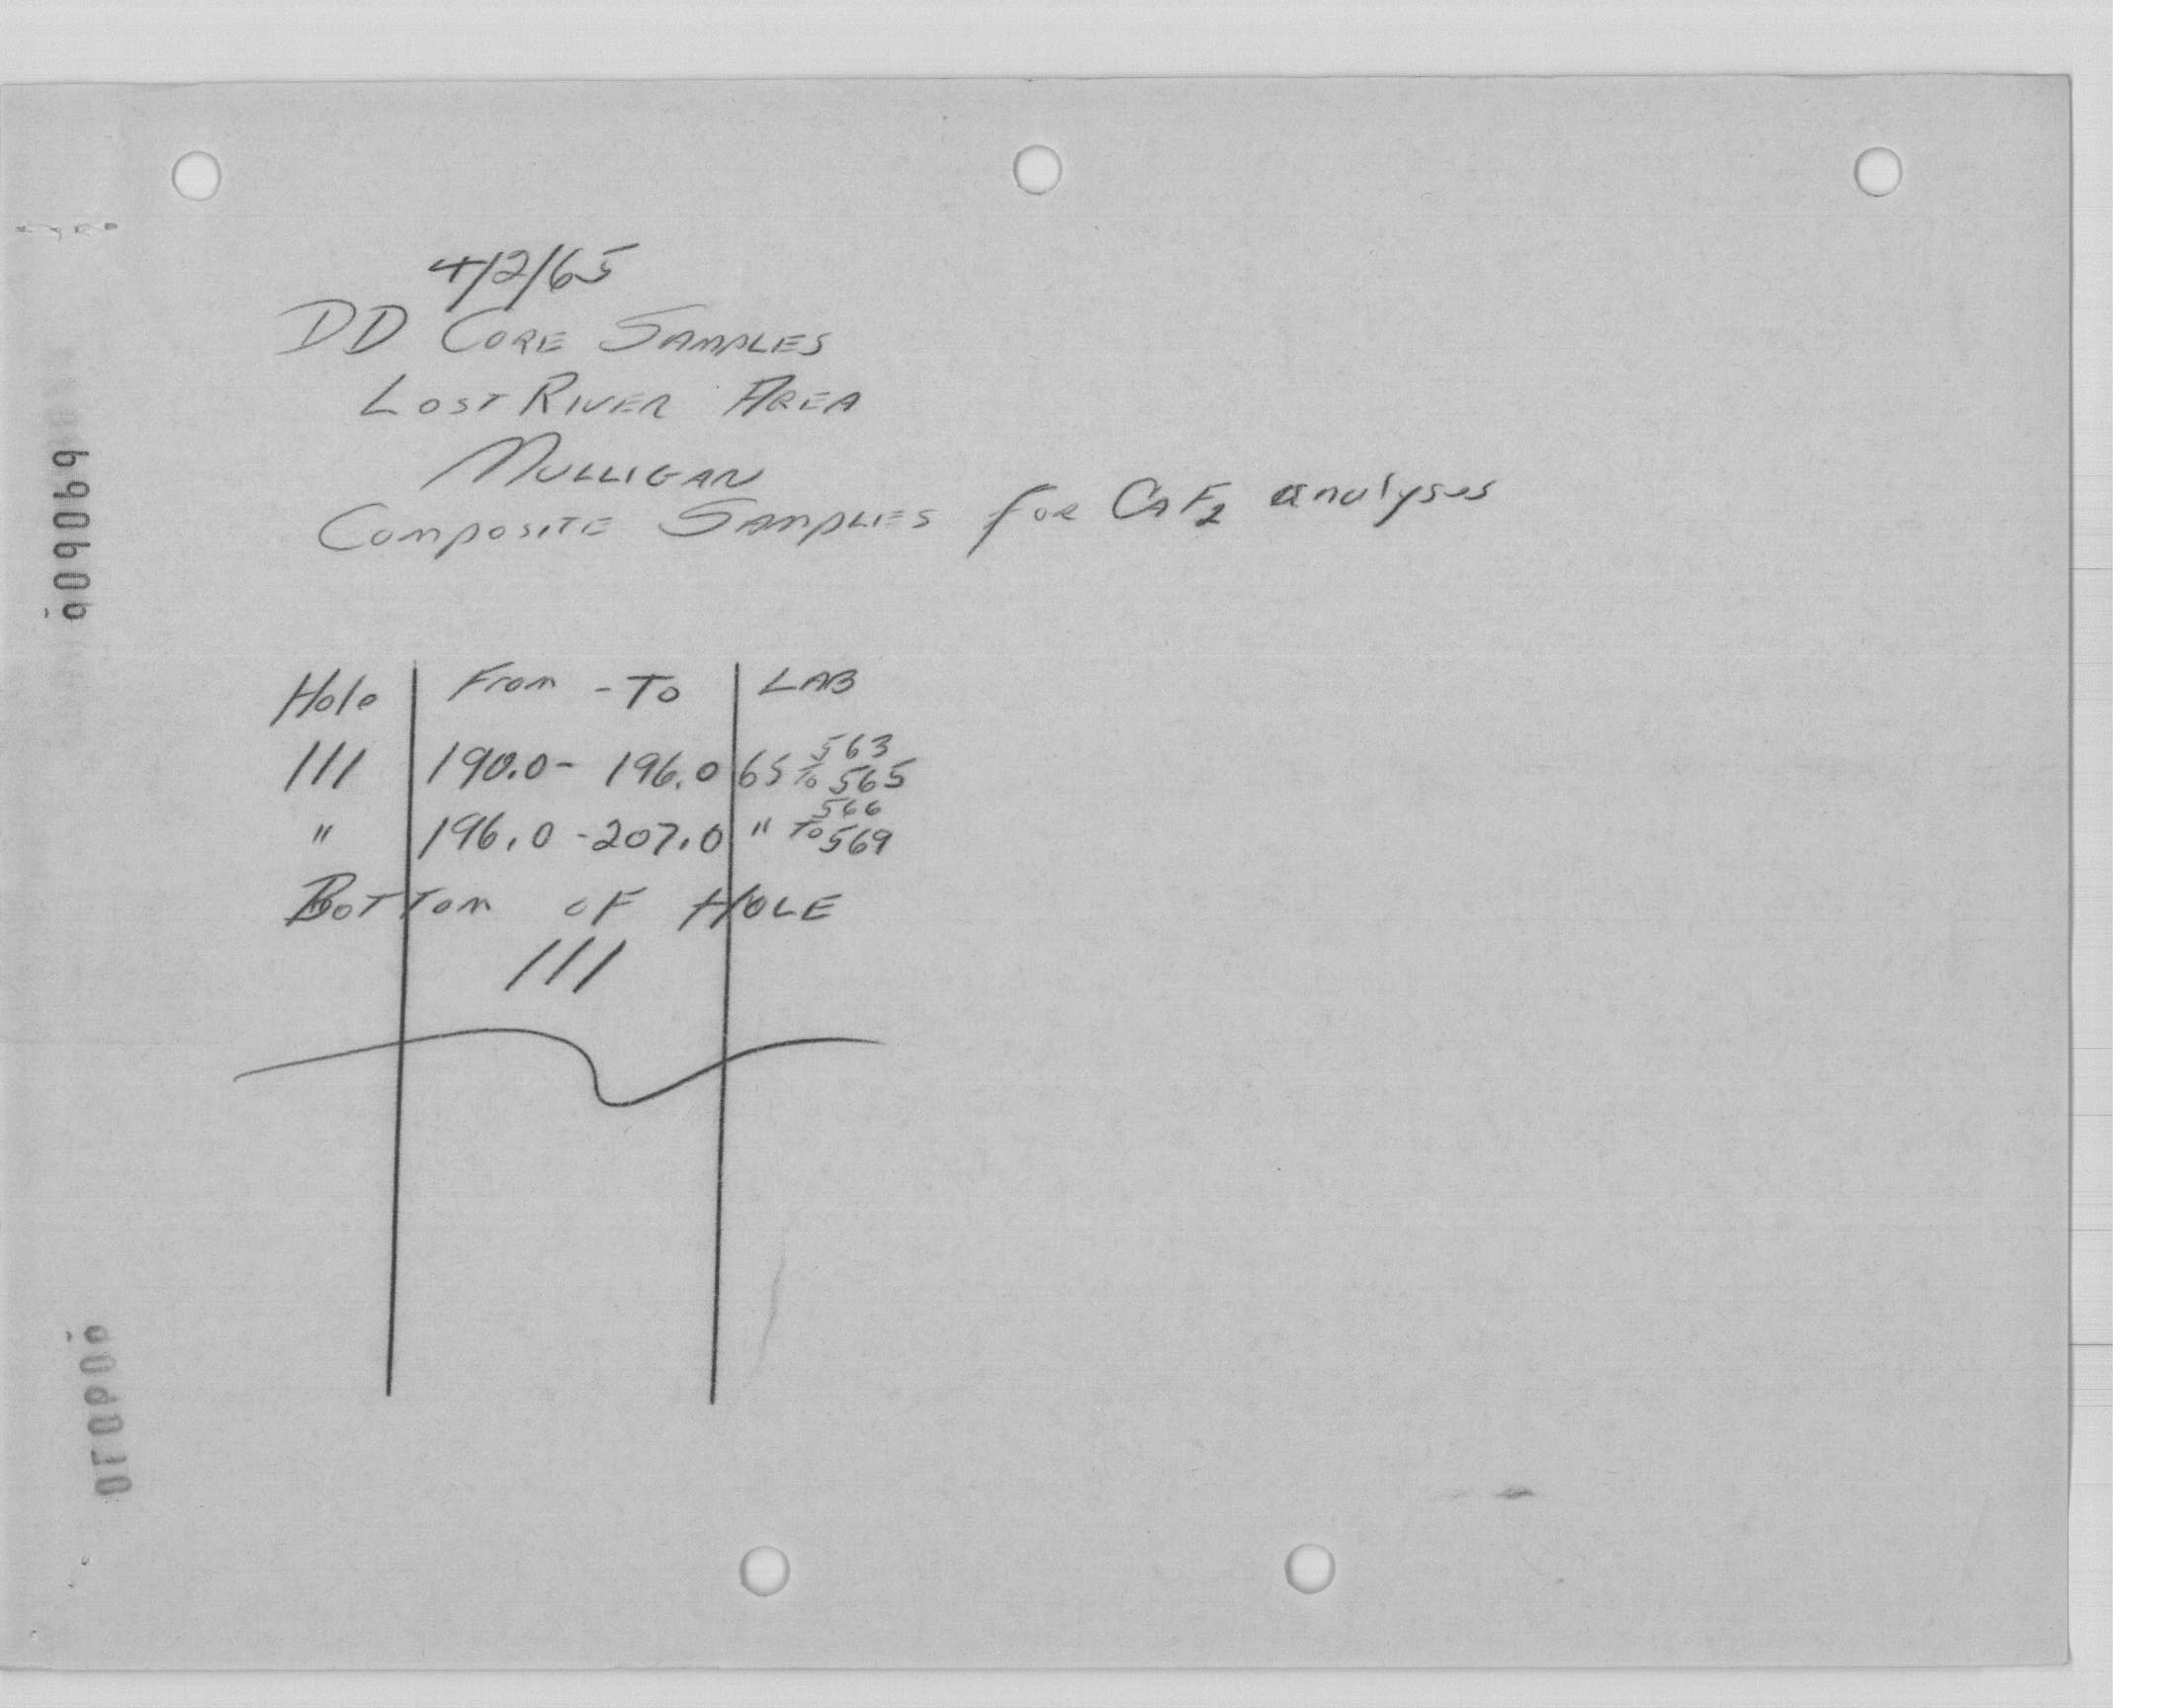 4/2/65
DD CORE SAMPLES
LOST RIVER AREA
MULLIGAN
COMPOSITE SAMPLES FOR CAF2 analyses
Hole From - To LAB
111 190.0 - 196.0 65 563 To 565
" 196.0 - 207.0 " 566 To 569
BOTTOM OF HOLE
111